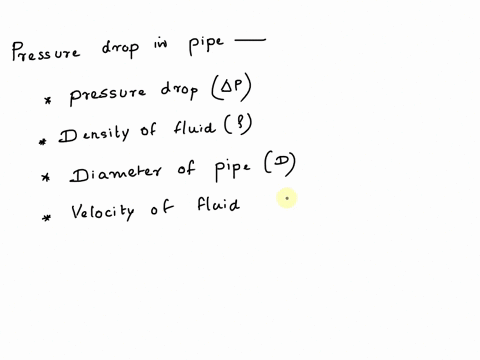 Pressure drop in pipe —
* pressure drop (ΔP)
* Density of fluid (ρ)
* Diameter of pipe (D)
* Velocity of fluid